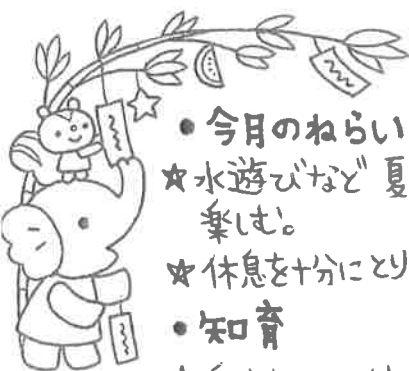 ● 今月のねらい
☆水遊びなど 夏
楽しむ。
☆休息を十分にとり
● 知育